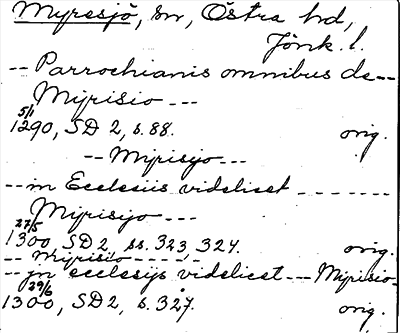 Myresjö, sn, Östra hd,
Jönk. l.
-- Parrochianis omnibus de --
Myrisio ---
5/1
1290, SD 2, s. 88. orig.
-- Myrisyo ---
-- in Ecclesiis videlicet -------
Myrisyo ---
27/5
1300, SD 2, ss. 323, 324. orig.
-- Myrisio ------
-- jn ecclesijs videlicet --- Myrisio-
29/6
1300, SD 2, s. 327. orig.